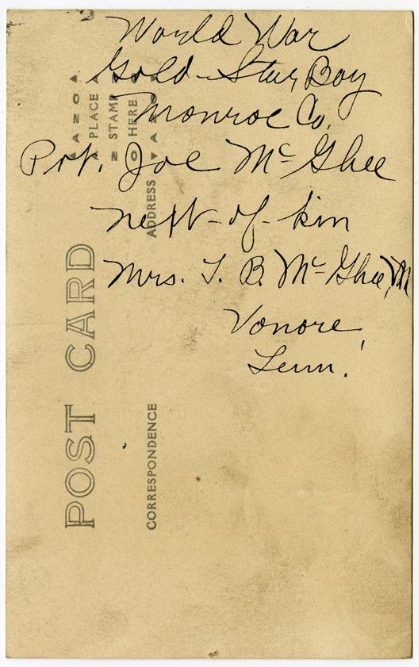 World War
Gold Star Boy
Monroe Co.
Pvt. Joe McGhee
next-of-kin
Mrs. T. B. McGhee, M
Vonore
Tenn.
POST CARD
CORRESPONDENCE
ADDRESS
PLACE
STAMP
HERE